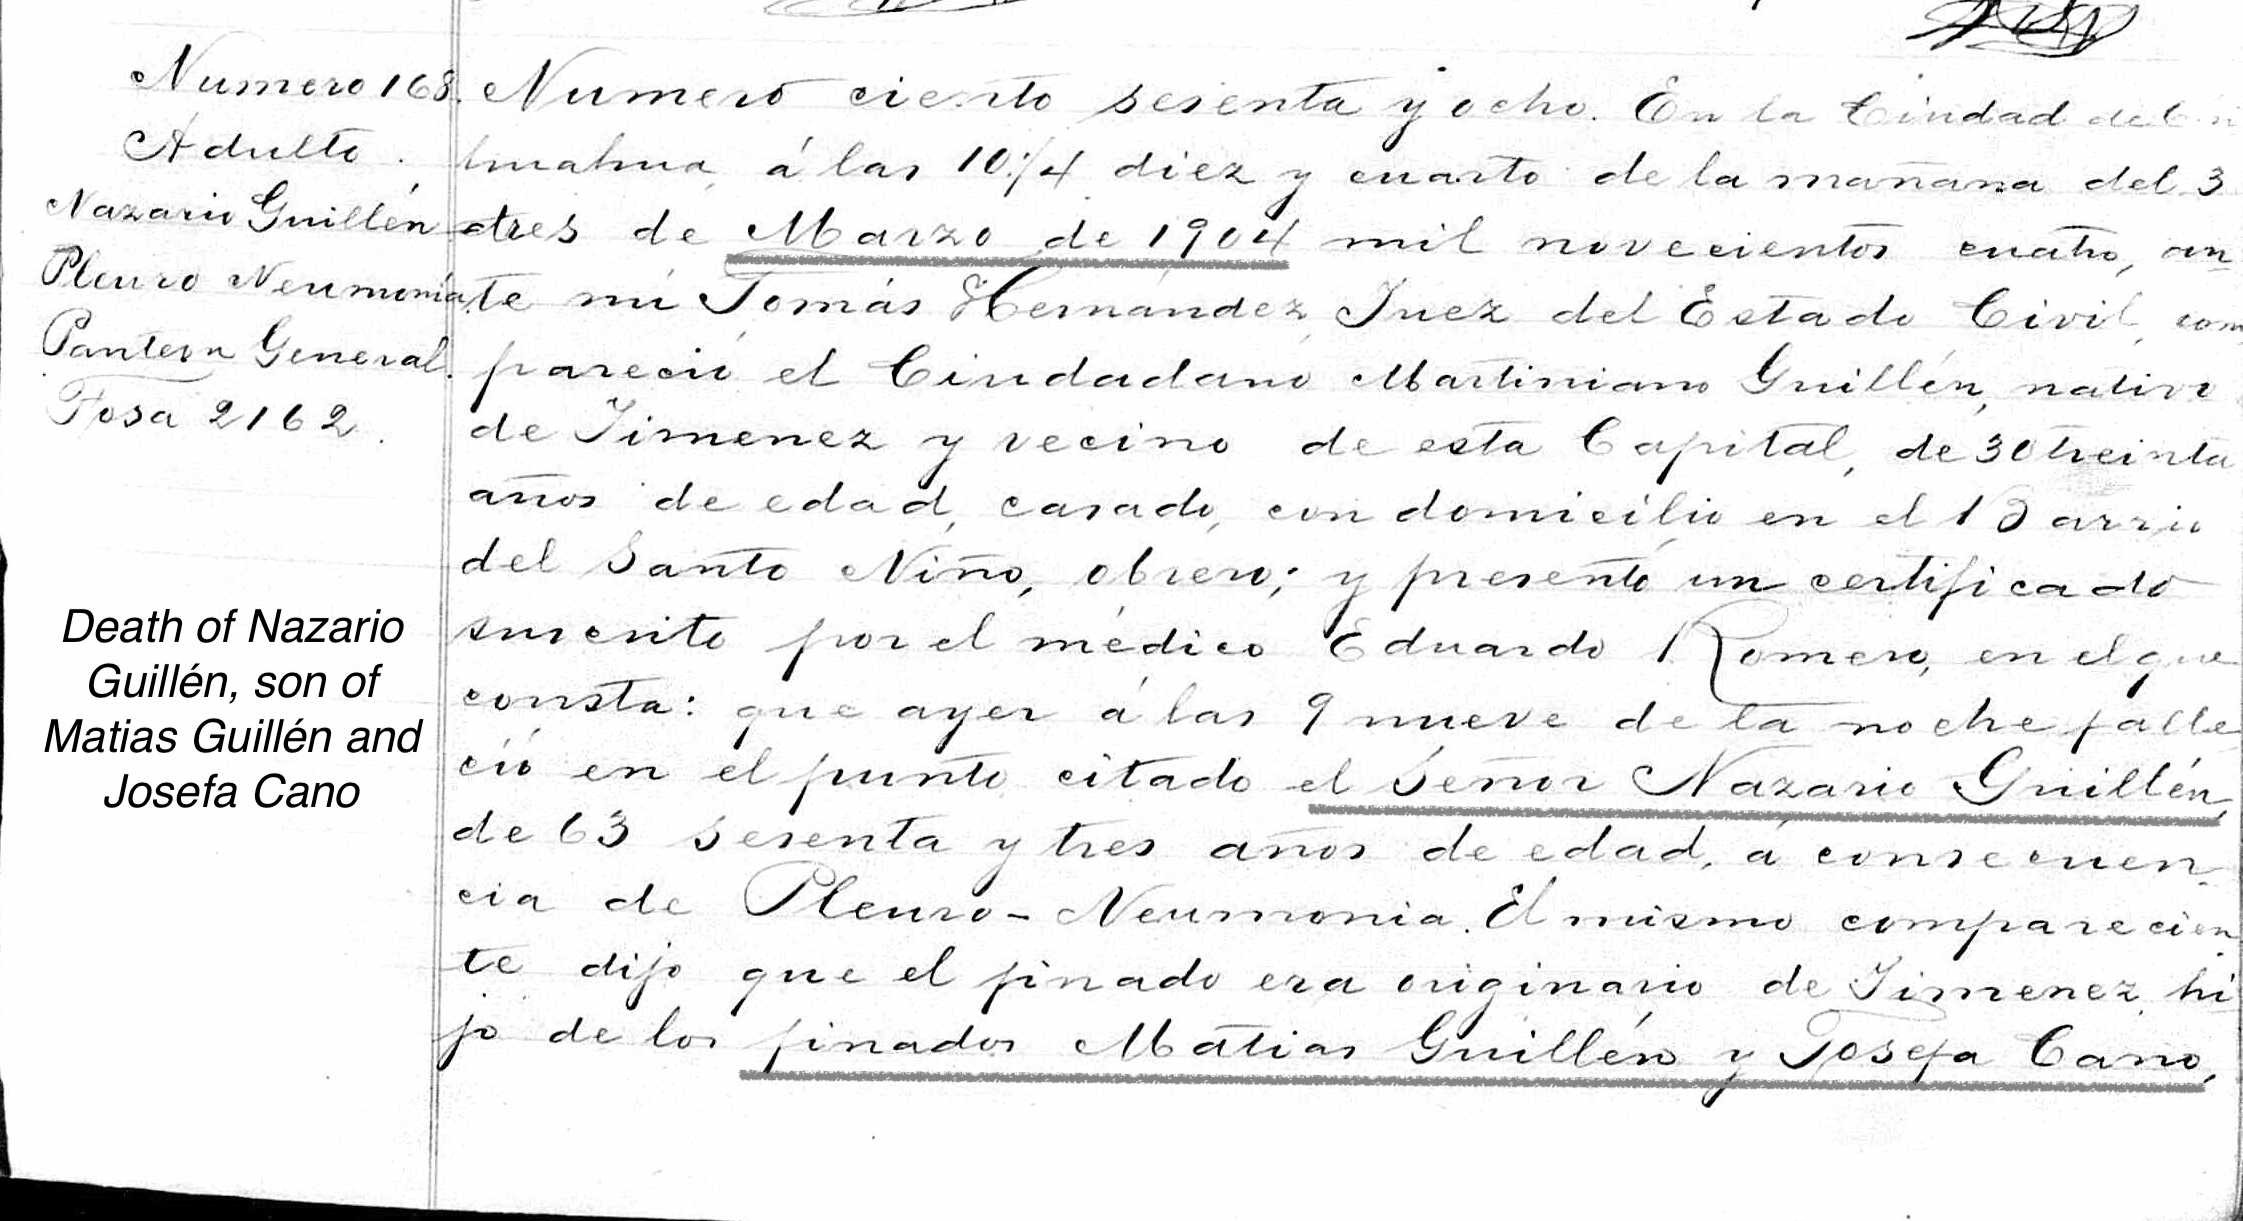 Numero 168.
Adulto.
Nazario Guillén
Pleuro Neumonía
Panteon General.
Fosa 2162.
Death of Nazario
Guillén, son of
Matias Guillén and
Josefa Cano
Numero ciento sesenta y ocho. En la Ciudad de Chi
huahua, á las 10:1/4 diez y cuarto de la mañana del 3
tres de Marzo de 1904 mil novecientos cuatro, an
te mi Tomás Hernández, Juez del Estado Civil, com
pareció el Ciudadano Martiniano Guillén, nativo
de Jimenez y vecino de esta Capital, de 30 treinta
años de edad, casado, con domicilio en el Barrio
del Santo Niño, obrero; y presentó un certificado
suscrito por el médico Eduardo Romero, en el que
consta: que ayer á las 9 nueve de la noche falle
ció en el punto citado el Señor Nazario Guillén,
de 63 sesenta y tres años de edad, á consecuen
cia de Pleuro-Neumonia. El mismo comparecien
te dijo que el finado era originario de Jimenez, hi
jo de los finados Matias Guillén y Josefa Cano,